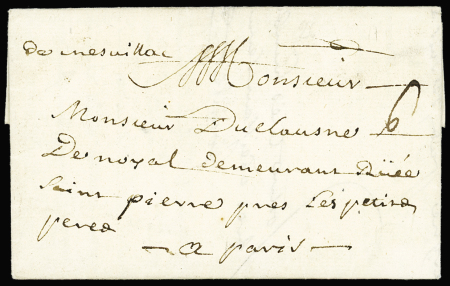 de mesuillac
Monsieur
Monsieur Duclausne 6
De noyal demeurant Rüée
saint pierre pres Les petits
peres
a paris